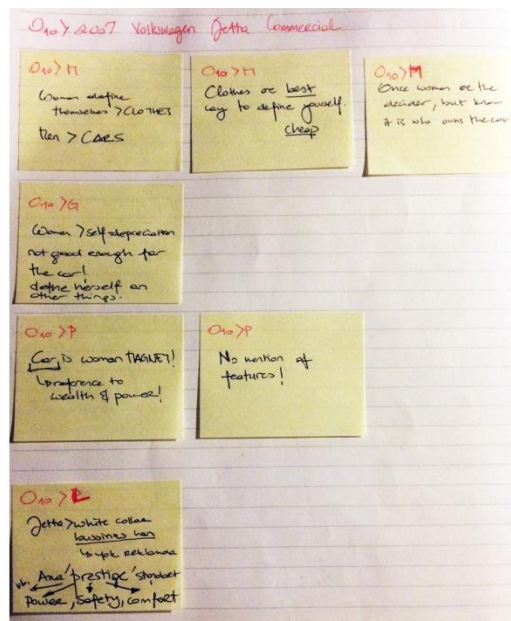 O10 > 2007 Volkswagen Jetta Commercial
O10 > M
Women define
themselves > CLOTHES
Men > CARS
O10 > M
Clothes are best
way to define yourself.
cheap
O10 > M
Once women are the
decider, but know
it is who owns the car
O10 > G
Woman > self-depreciation
not good enough for
the car!
define herself on
other things.
O10 > P
Car, is woman MAGNET!
↳ preference to
wealth & power!
O10 > P
No mention of
features!
O10 > L
Jetta > white collar
bussines man
↳ yok reklamda
Ama 'prestige'
power, safety, comfort